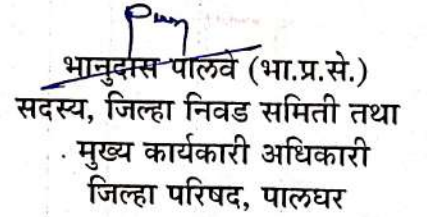 भानुदास पालवे (भा.प्र.से.)
सदस्य, जिल्हा निवड समिती तथा
मुख्य कार्यकारी अधिकारी
जिल्हा परिषद, पालघर